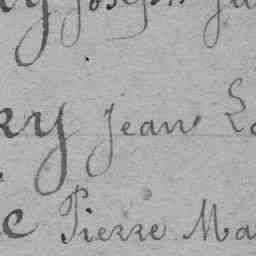 y Joseph Ju
ky Jean La
e Pierre Ma